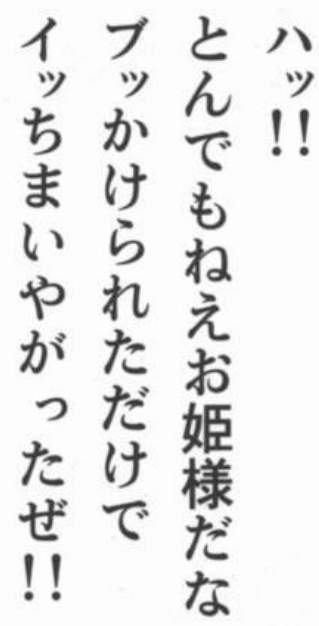 ハッ!!
とんでもねえお姫様だな
ブッかけられただけで
イッちまいやがったぜ!!